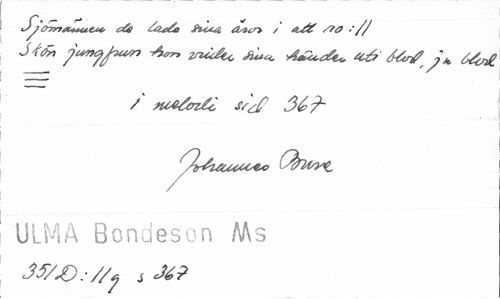 Sjömännen de lade sina åror i att ro :||
Skön jungfrun hon vrider sina händer uti blod, ja blod
1 melodi sid 367
Johannes Bure
ULMA Bondeson Ms
351D:11g s 367